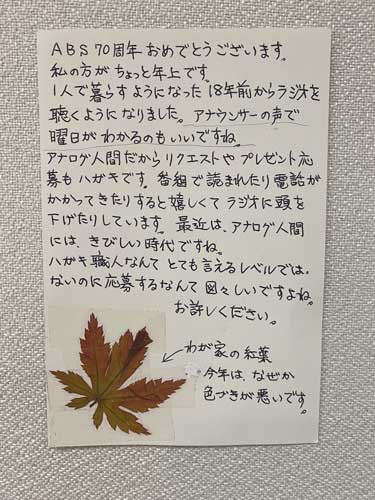 ABS 70周年 おめでとうございます。
私の方が ちょっと年上です。
1人で暮らすようになった 18年前からラジオを
聴くようになりました。アナウンサーの声で
曜日がわかるのもいいですね。
アナログ人間だから リクエストや プレゼント応
募も ハガキです。番組で 読まれたり 電話が
かかってきたりすると嬉しくて ラジオに頭を
下げたりしています。最近は、アナログ人間
には、きびしい時代ですね。
ハガキ職人なんて とても言えるレベルでは、
ないのに応募するなんて 図々しいですよね。
お許しください。
わが家の紅葉
今年は、なぜか
色づきが悪いです。